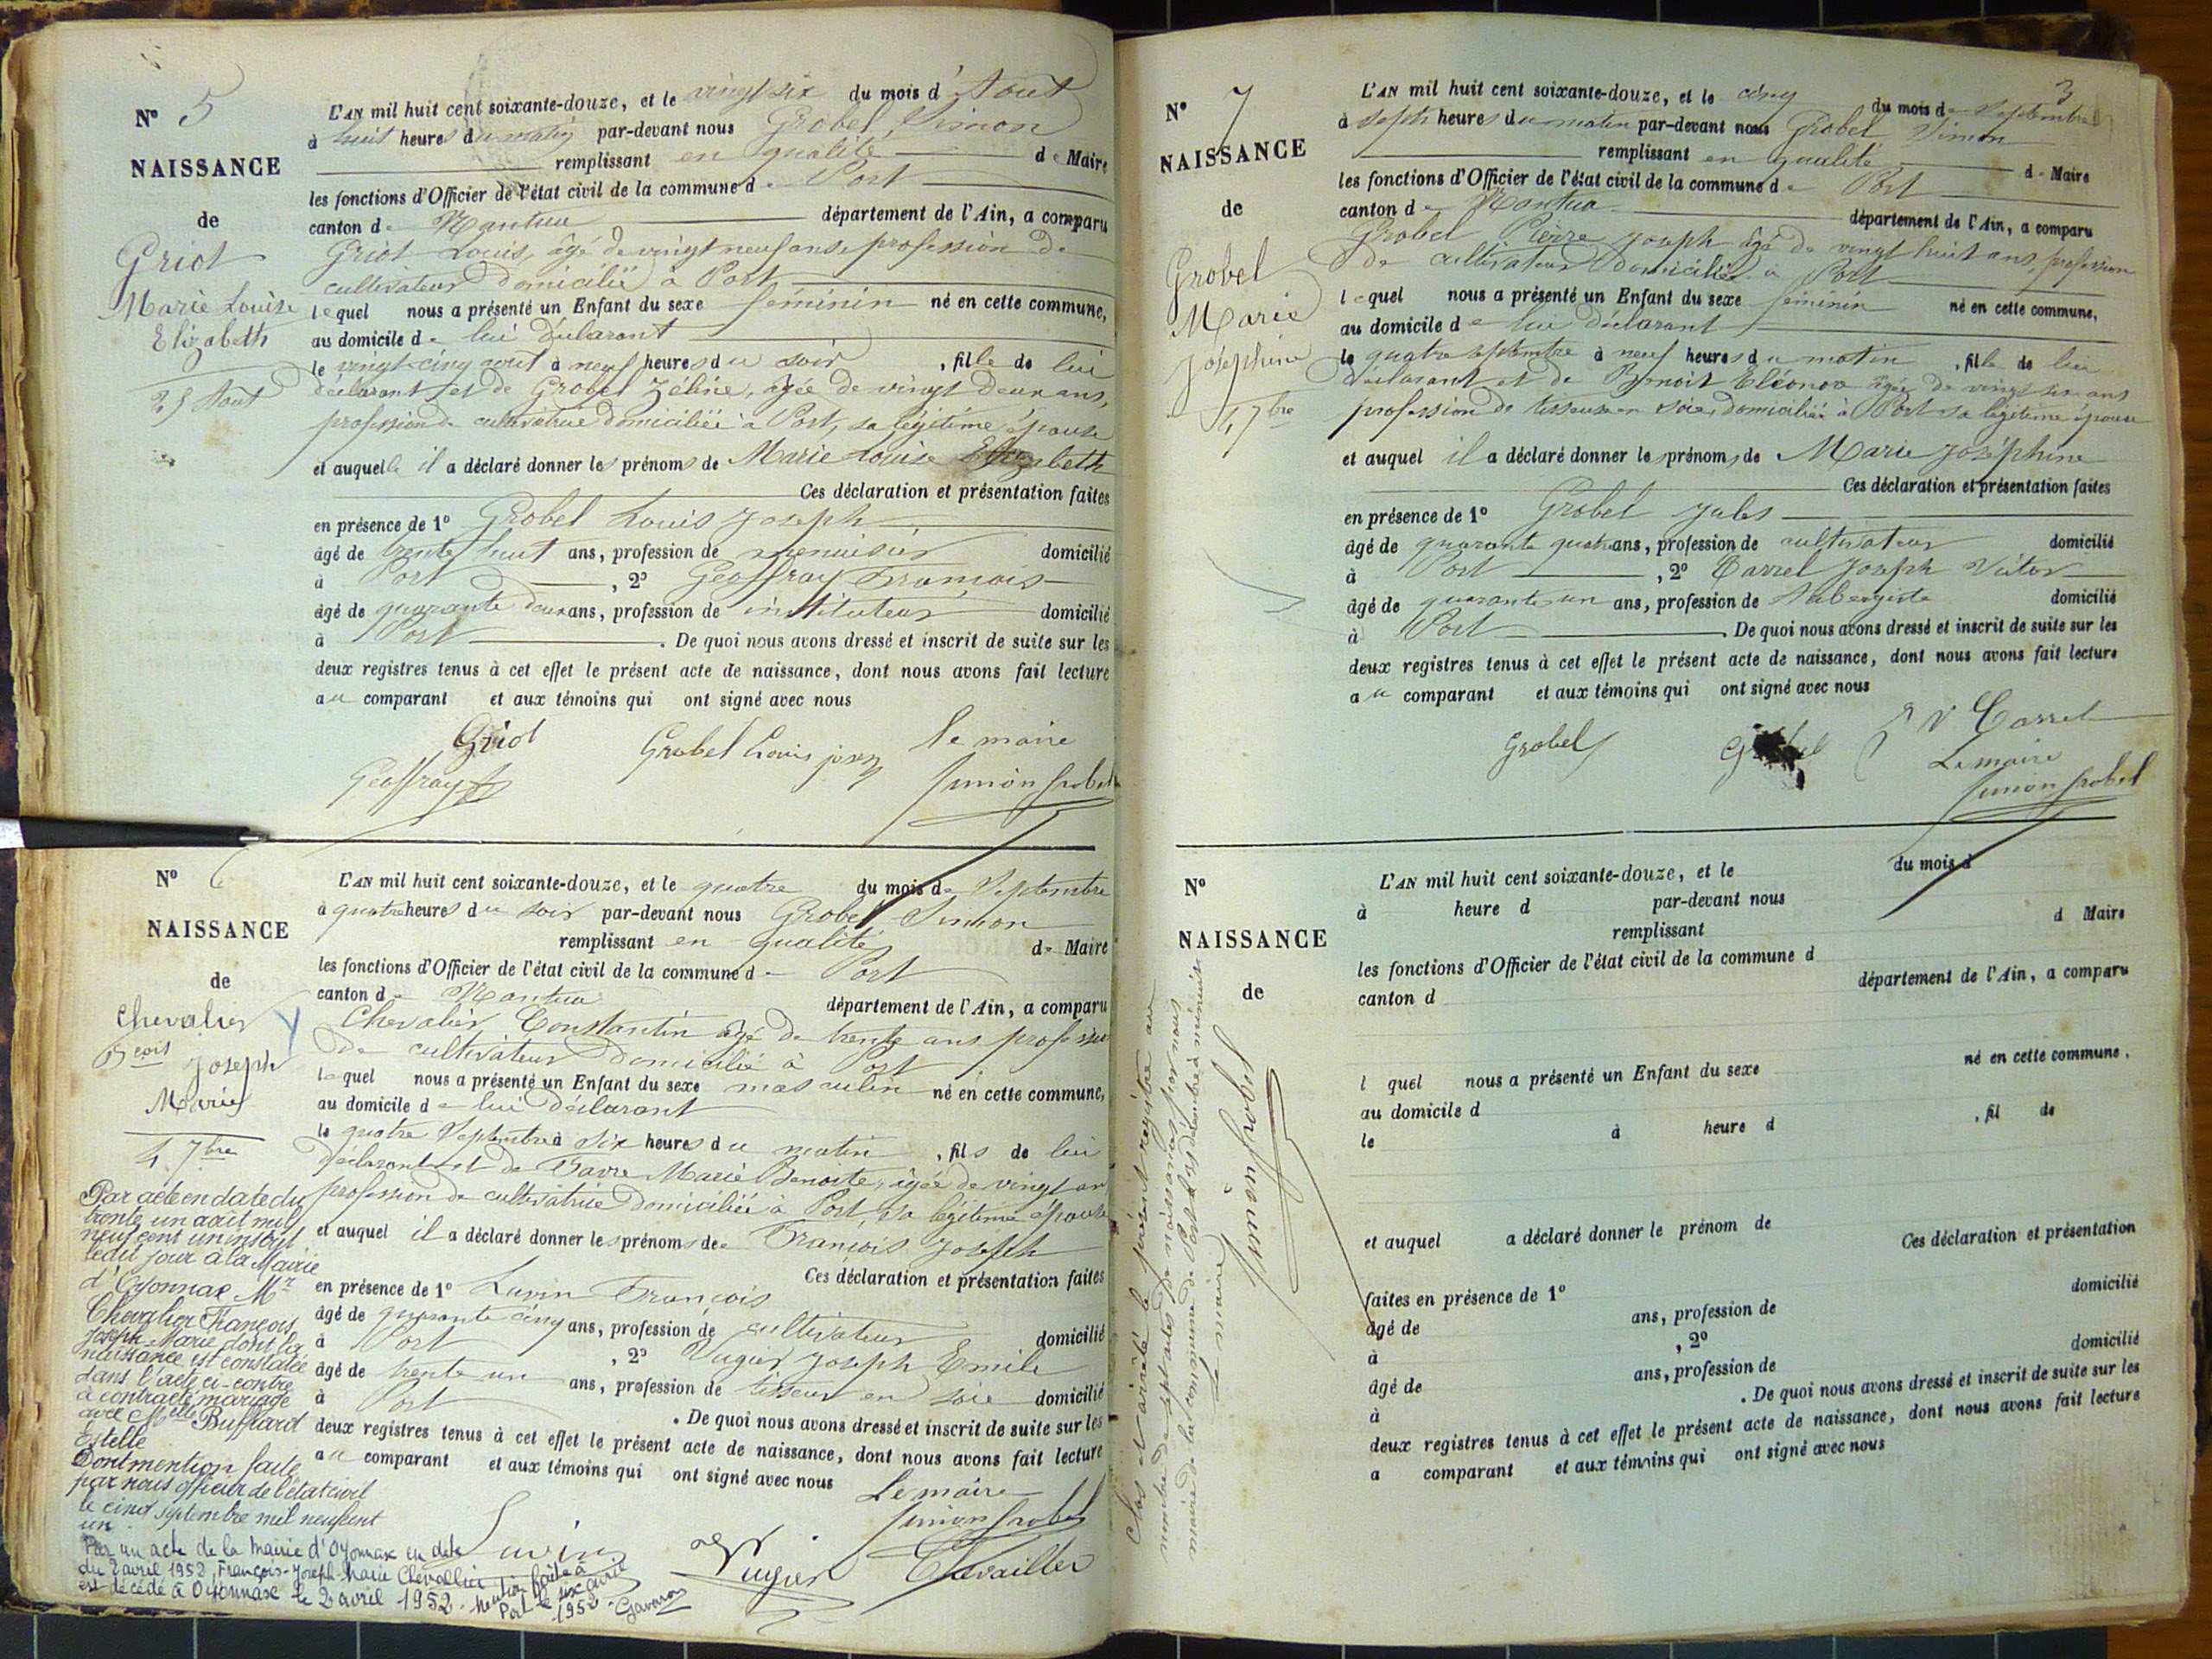 N° 5
NAISSANCE
de
Griot
Marie Louise
Elizabeth
25 Aout
L'AN mil huit cent soixante-douze, et le vingt six du mois d'Aout
à huit heures du matin par-devant nous Grobel Simon
remplissant en qualité de Maire
les fonctions d'Officier de l'état civil de la commune de Port
canton de Nantua département de l'Ain, a comparu
Griot Louis, âgé de vingt neuf ans profession de
cultivateur domicilié à Port
lequel nous a présenté un Enfant du sexe féminin né en cette commune,
au domicile de lui déclarant
le vingt-cinq aout à neuf heures du soir, fille de lui
déclarant et de Grobel Zéline, agée de vingt deux ans,
profession de cultivatrice domiciliée à Port, sa légitime épouse
et auquelle il a déclaré donner les prénoms de Marie Louise Elizabeth
Ces déclaration et présentation faites
en présence de 1° Grobel Louis Joseph
âgé de trente huit ans, profession de menuisier domicilié
à Port, 2° Geoffray François
âgé de quarante deux ans, profession de instituteur domicilié
à Port. De quoi nous avons dressé et inscrit de suite sur les
deux registres tenus à cet effet le présent acte de naissance, dont nous avons fait lecture
au comparant et aux témoins qui ont signé avec nous
Griot Grobel Louis Le maire
Geoffray Simon Grobel
N° 6
NAISSANCE
de
Chevalier
Joseph
Marie
4 7bre
L'AN mil huit cent soixante-douze, et le quatre du mois de Septembre
à quatre heures du soir par-devant nous Grobel Simon
remplissant en qualité de Maire
les fonctions d'Officier de l'état civil de la commune de Port
canton de Nantua département de l'Ain, a comparu
Chevalier Constantin âgé de trente ans profession
de cultivateur domicilié à Port
lequel nous a présenté un Enfant du sexe masculin né en cette commune,
au domicile de lui déclarant
le quatre Septembre à six heures du matin, fils de lui
déclarant et de Favre Marie Benoite, âgée de vingt
profession de cultivatrice domiciliée à Port, sa légitime épouse
et auquel il a déclaré donner les prénoms de François Joseph
Ces déclaration et présentation faites
en présence de 1° François
âgé de quarante cinq ans, profession de cultivateur domicilié
à Port, 2° Joseph Emile
âgé de trente un ans, profession de tisseur en soie domicilié
à Port. De quoi nous avons dressé et inscrit de suite sur les
deux registres tenus à cet effet le présent acte de naissance, dont nous avons fait lecture
au comparant et aux témoins qui ont signé avec nous
Le maire
Simon Grobel
Par acte en date du
trente un août mil
neuf cent un inscrit
ledit jour à la Mairie
d'Oyonnax Mr
Chevalier François
Joseph Marie dont la
naissance est constatée
dans l'acte ci-contre
a contracté mariage
avec Melle Buffard
Estelle
Dont mention faite
par nous officier de l'état civil
le cinq septembre mil neuf cent
un.
Par un acte de la mairie d'Oyonnax en date
du 2 avril 1952, François-Joseph-Marie Chevallier
est décédé à Oyonnax le 2 avril 1952. Mention faite à
Port le six avril
1952.
3
N° 7
NAISSANCE
de
Grobel
Marie
Joséphine
4 7bre
L'AN mil huit cent soixante-douze, et le cinq du mois de Septembre
à Sept heures du matin par-devant nous Grobel Simon
remplissant en qualité de Maire
les fonctions d'Officier de l'état civil de la commune de Port
canton de Nantua département de l'Ain, a comparu
Grobel Pierre Joseph âgé de vingt huit ans, profession
de cultivateur domicilié à Port
lequel nous a présenté un Enfant du sexe féminin né en cette commune,
au domicile de lui déclarant
le quatre septembre à neuf heures du matin, fille de lui
déclarant et de Benoit Eléonor âgée de vingt six ans
profession de tisseuse en soie, domiciliée à Port sa légitime épouse
et auquel il a déclaré donner les prénoms de Marie Joséphine
Ces déclaration et présentation faites
en présence de 1° Grobel Jules
âgé de quarante quatre ans, profession de cultivateur domicilié
à Port, 2° Carrel Joseph Victor
âgé de quarante un ans, profession de Aubergiste domicilié
à Port. De quoi nous avons dressé et inscrit de suite sur les
deux registres tenus à cet effet le présent acte de naissance, dont nous avons fait lecture
au comparant et aux témoins qui ont signé avec nous
Grobel J V Carrel
Le maire
Simon Grobel
N°
NAISSANCE
de
L'AN mil huit cent soixante-douze, et le du mois d
à heure d par-devant nous
remplissant d Maire
les fonctions d'Officier de l'état civil de la commune d
canton d département de l'Ain, a comparu
l quel nous a présenté un Enfant du sexe né en cette commune,
au domicile d
le à heure d, fil de
et auquel a déclaré donner le prénom de
Ces déclaration et présentation
faites en présence de 1°
âgé de ans, profession de domicilié
à, 2°
âgé de ans, profession de domicilié
à. De quoi nous avons dressé et inscrit de suite sur les
deux registres tenus à cet effet le présent acte de naissance, dont nous avons fait lecture
a comparant et aux témoins qui ont signé avec nous
Clos et arrêté le présent registre au
nombre de sept actes de naissances par nous
maire de la commune de Port le 31 décembre à minuit
Le maire
Simon Grobel